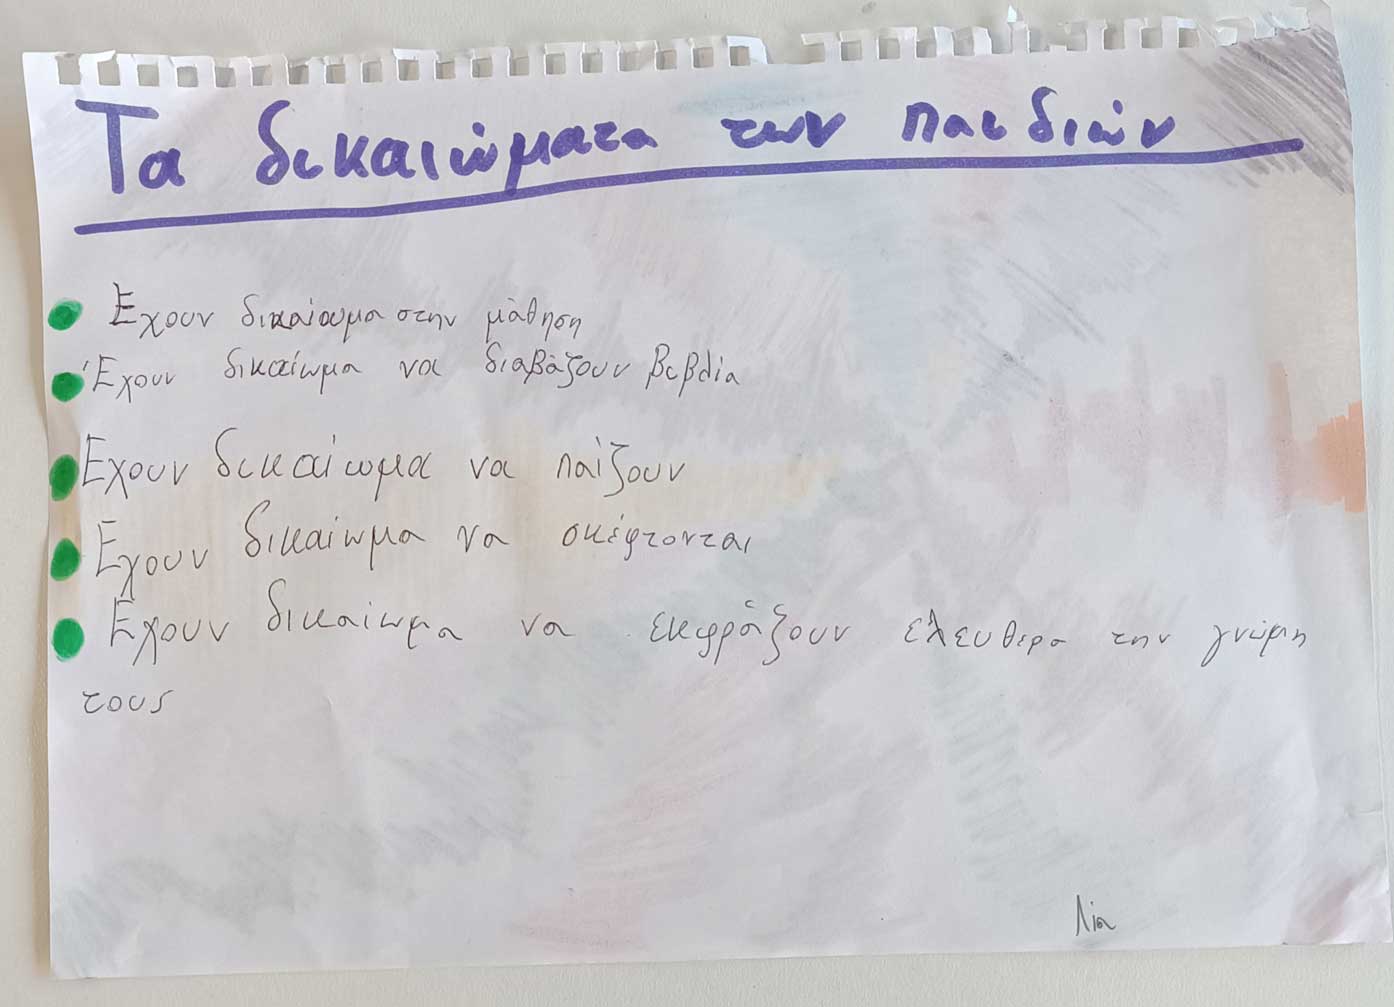 Τα δικαιώματα των παιδιών
Έχουν δικαίουμα στην μάθηση
Έχουν δικαίωμα να διαβάζουν βιβλία
Εχουν δικαίωμα να παίζουν
Εχουν δικαίωμα να σκέφτονται
Εχουν δικαίωμα να εκφράζουν ελευθερα την γνώμη
τους
Λία